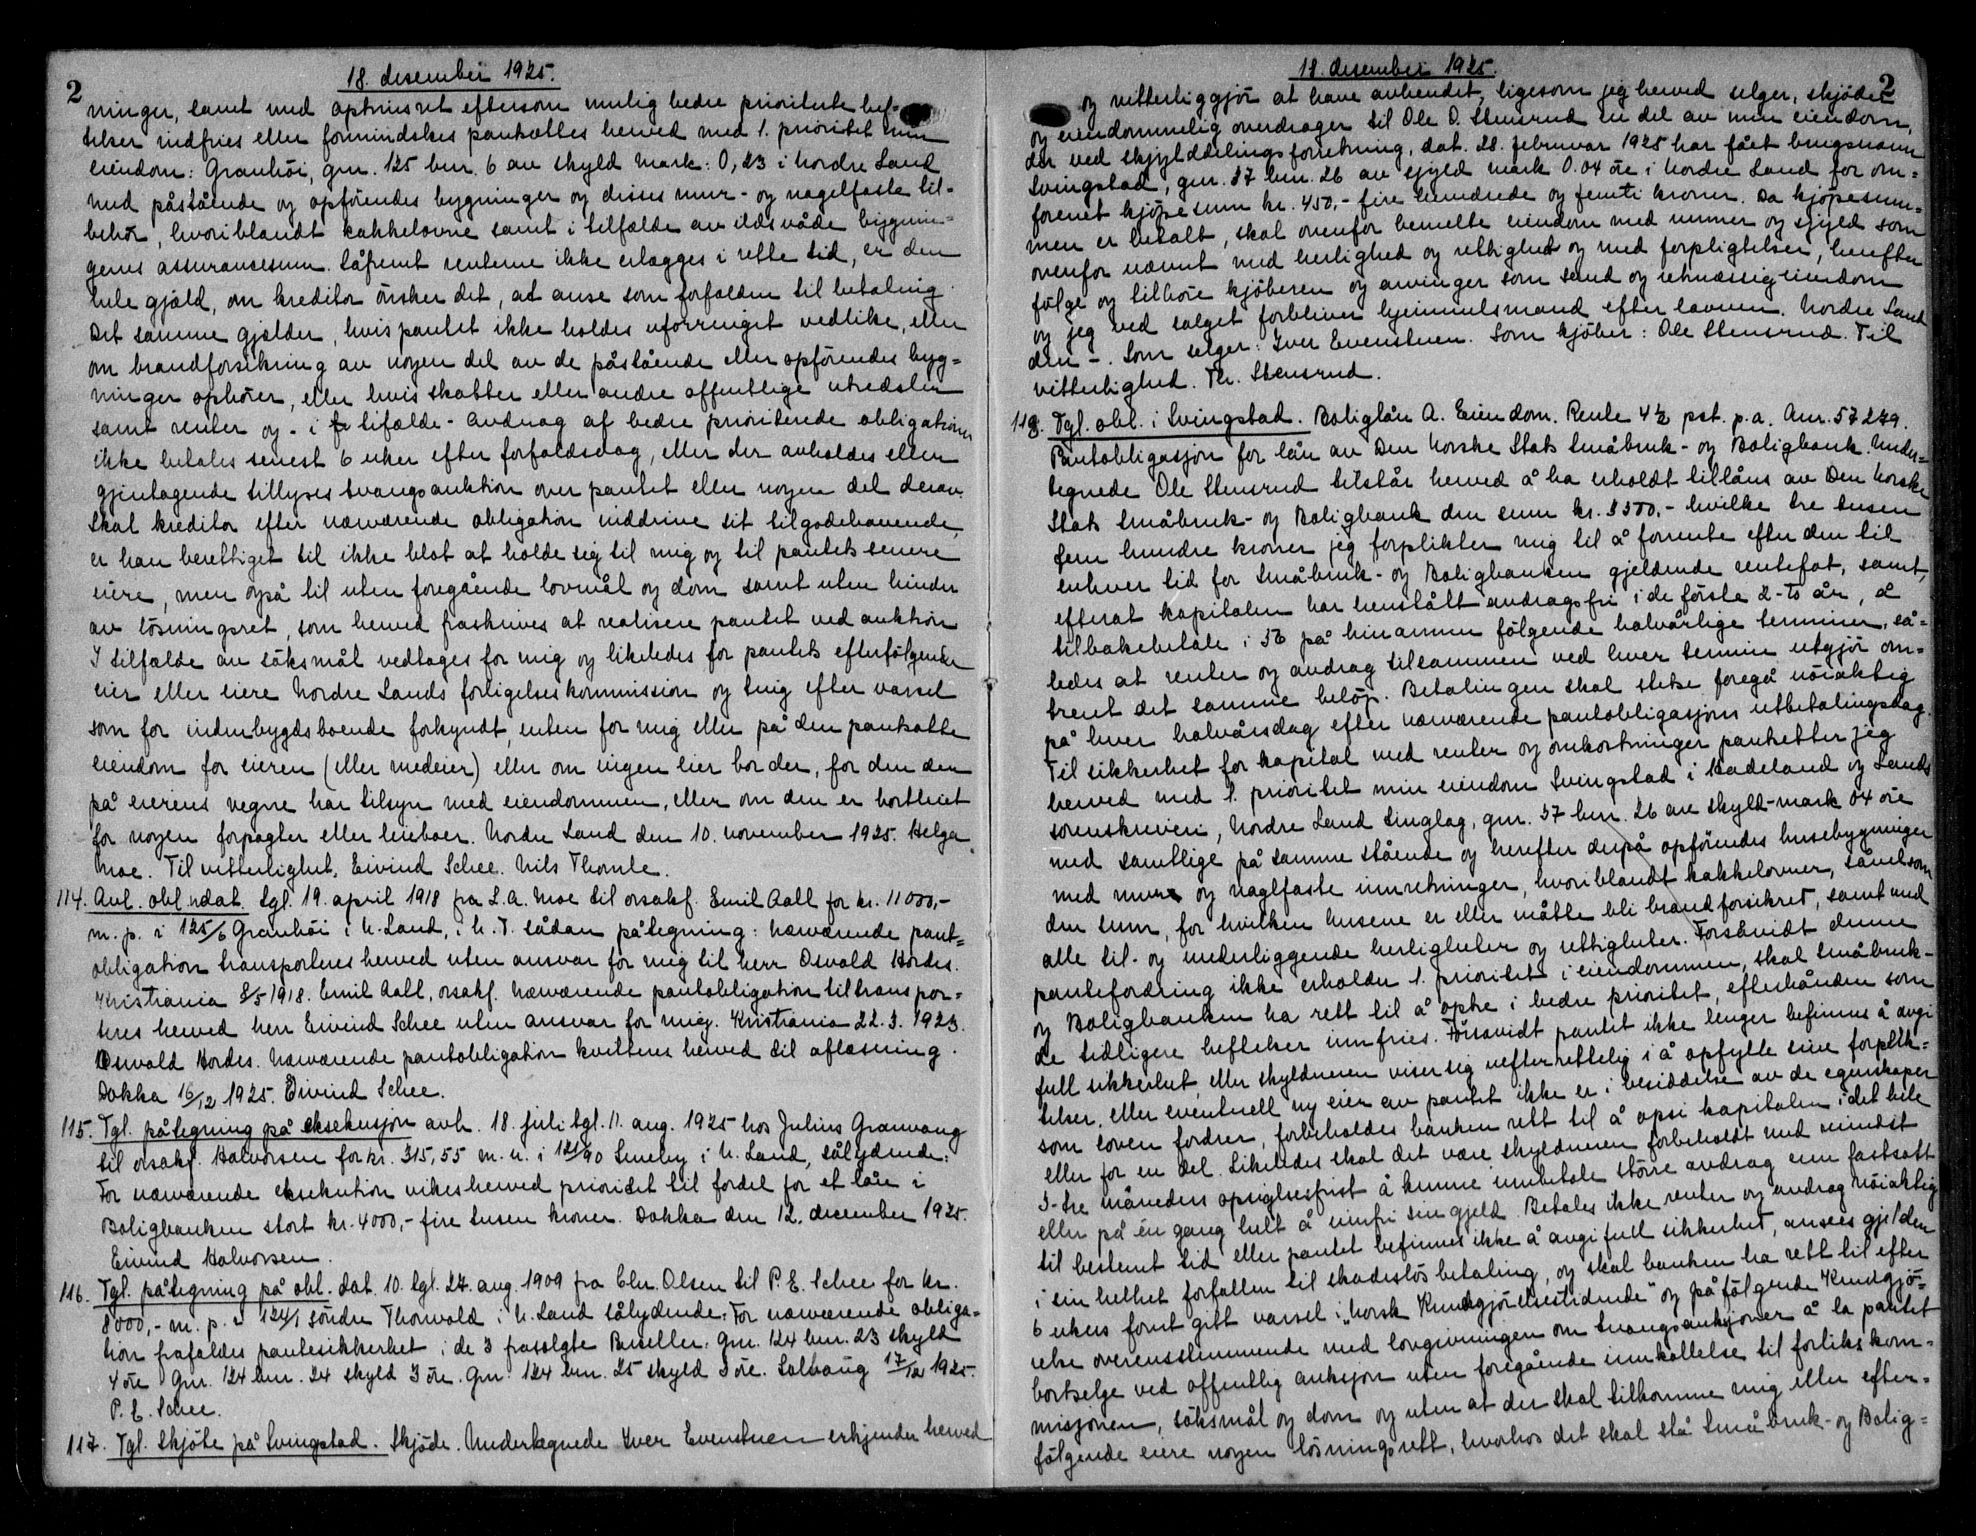 2
18. desember 1925.
ninger, samt med optrinsret eftersom mulig bedre prioriterte hef-
telser indfries eller formindskes pantsættes herved med 1. prioritet min
eiendom: Granhöi, gnr. 125 bnr. 6 av skyld mark: 0,23 i Nordre Land
med påstående og opförendes bygninger og disses mur- og nagelfaste til-
behör, hvoriblandt kakkelovne samt i tilfælde av ildsvåde bygnin-
genes assurancesum. Såfremt renterne ikke erlægges i rette tid, er den
hele gjæld, om kreditor önsker det, at anse som forfalden til betaling.
Det samme gjælder, hvis pantet ikke holdes uforringet vedlike, eller
om brandforsikring av nogen del av de påstående eller opförendes byg-
ninger ophörer, eller hvis skatter eller andre offentlige utredsler
samt renter og - i tilfælde - avdrag af bedre prioriterede obligationer
ikke betales senest 6 uker efter forfaldsdag, eller der avholdes eller
gjentagende tillyses tvangsauktion over pantet eller nogen del derav.
Skal kreditor efter nærværende obligation inddrive sit tilgodehavende,
er han berettiget til ikke blot at holde sig til mig og til pantets senere
eiere, men også til uten foregående lovmål og dom samt uten hinder
av lösningsret, som herved fraskrives at realisere pantet ved auktion
I tilfælde av söksmål vedtages for mig og likeledes for pantets efterfölgende
eier eller eiere Nordre Lands forligelseskommission og ting efter varsel
som for indenbygdsboende forkyndt, enten for mig eller på den pantsatte
eiendom for eieren (eller medeier) eller om ingen eier bor der, for den der
på eierens vegne har tilsyn med eiendommen, eller om den er bortleiet
for nogen forpagter eller leieboer. Nordre Land den 10. november 1925. Helga
Moe. Til vitterlighet, Eivind Schee. Nils Thomle.
114. Avl. obl. udat. tgl. 19. april 1918 fra L. A. Moe til orsakf. Emil Aall for kr. 11000,-
m. p. i 125/6 Granhöi i N. Land, i N. T. sådan påtegning: Nærværende pant-
obligation transporteres herved uten ansvar for mig til herr Osvald Hordes.
Kristiania 8/5 1918. Emil Aall, orsakf. Nærværende pantobligation tiltranspor-
teres herved herr Eivind Schee uten ansvar for mig. Kristiania 22. 3. 1923.
Osvald Hordes. Nærværende pantobligation kvitteres herved til aflæsning.
Dokka 16/12 1925. Eivind Schee.
115. Tgl. påtegning på eksekusjon avh. 18. juli tgl. 11. aug. 1925 hos Julius Granvang
til orsakf. Halvorsen for kr. 315,55 m. u. i 121/90 Lundby i N. Land, sålydende:
For nærværende eksekution vikes herved prioritet til fordel for et lån i
Boligbanken stort kr. 4000,- fire tusen kroner. Dokka den 12. december 1925.
Eivind Halvorsen.
116. Tgl. påtegning på obl. dat. 10. tgl. 24. aug. 1909 fra Chr. Olsen til P. E. Schee for kr.
8000,- m. p. i 124/1 söndre Thonvold i N. Land sålydende: For nærværende obliga-
tion frafaldes pantesikkerhet i de 3 frasolgte Parseller. Gnr. 124 bnr. 23 skyld
4 öre Gnr. 124 bnr. 24 skyld 3 öre. Gnr. 124 bnr. 25 skyld 3 öre. Solhaug 17/12 1925.
P. E. Schee.
117. Tgl. Skjöte på Svingstad. Skjöde. Undertegnede Iver Evenstuen erkjender herved
18. desember 1925.
2
og vitterliggjör at have avhendet, ligesom jeg herved selger, skjöder
og eiendommelig overdrager til Ole O. Stensrud en del av min eiendom,
der ved skjylddelingsforretning, dat. 28. februar 1925 har fået brugsnavn
Svingstad, gnr. 57 bnr. 26 av sjyld mark 0.04 öre i Nordre Land for om-
forenet kjöpesum kr. 450,- fire hundrede og femti kroner. Da kjöpesum-
men er betalt, skal ovenfor bemelte eiendom med numer og sjyld som
ovenfor nævnt med herlighed og rettighed og med forpligtelser, herefter
fölge og tilhöre kjöberen og arvinger som sand og retmæssig eiendom
og jeg ved salget forbliver hjemmelsmand efter loven. Nordre Land
den -. Som selger: Iver Evenstuen. Som kjöber: Ole Stensrud. Til
vitterlighed. Th. Stensrud.
118. Tgl. obl. i Svingstad. Boliglån A. Eiendom. Rente 4½ pst. p.a. Anr. 57279.
Pantobligasjon for lån av Den Norske Stats Småbruk- og Boligbank. Under-
tegnede Ole Stensrud tilstår herved å ha erholdt tillåns av Den Norske
Stats Småbruk- og Boligbank den sum kr. 3500,- hvilke tre tusen
fem hundre kroner jeg forplikter mig til å forrente efter den til
enhver tid for Småbruk- og Boligbanken gjeldende rentefot, samt,
efterat kapitalen har henstått avdragsfri i de förste 2-to år, å
tilbakebetale i 56 på hinannen fölgende halvårlige terminer, så-
ledes at renter og avdrag tilsammen ved hver termin utgjör om-
trent det samme belöp. Betalingen skal stekse foregå nöiaktig
på hver halvårsdag efter nærværende pantobligasjons utbetalingsdag.
Til sikkerhet for kapital med renter og omkostninger pantsetter jeg
herved med 1. prioritet min eiendom Svingstad i Hadeland og Lands
sorenskriveri, Nordre Land tinglag, gnr. 57 bnr. 26 av skyld-mark 04 öre
med samtlige på samme stående og herefter derpå opförendes husebygninger
med mur og naglfaste innretninger, hvoriblandt kakkelovner, såvel som
den sum, for hvilken husene er eller måtte bli brandforsikret, samt med
alle til- og underliggende herligheter og rettigheter. Forsåvidt denne
pantefordring ikke erholder 1. prioritet i eiendommen, skal Småbruk-
og Boligbanken ha rett til å optre i bedre prioritet, efterhånden som
de tidligere heftelser innfries. Försåvidt pantet ikke lenger befinnes å avgi
full sikkerhet, eller skyldneren viser sig uefterrettelig i å opfylle sine forplik-
telser, eller eventuell ny eier av pantet ikke er i besiddelse av de egenskaper
som loven fordrer, forbeholdes banken rett til å opsi kapitalen i det hele
eller for en del. Likeledes skal det være skyldneren forbeholdt med mindst
3-tre måneders opsigelsesfrist å kunne innbetale större avdrag enn fastsatt
eller på én gang helt å innfri sin gjeld. Betales ikke renter og avdrag nöiaktig
til bestemt tid eller pantet befinnes ikke å avgi full sikkerhet, ansees gjelden
i sin helhet forfallen til skadeslös betaling, og skal banken ha rett til efter
6 ukers forut gitt varsel i „Norsk Kundgjörelsestidende" og påfölgende Kundgjö-
relse overensstemmende med lovgivningen om tvangsauksjoner å la pantet
bortselge ved offentlig auksjon uten foregående innkallelse til forlikskom-
misjonen, söksmål og dom og uten at der skal tilkomme mig eller efter-
fölgende eiere nogen lösningsrett, hvorhos det skal stå Småbruk- og Bolig-